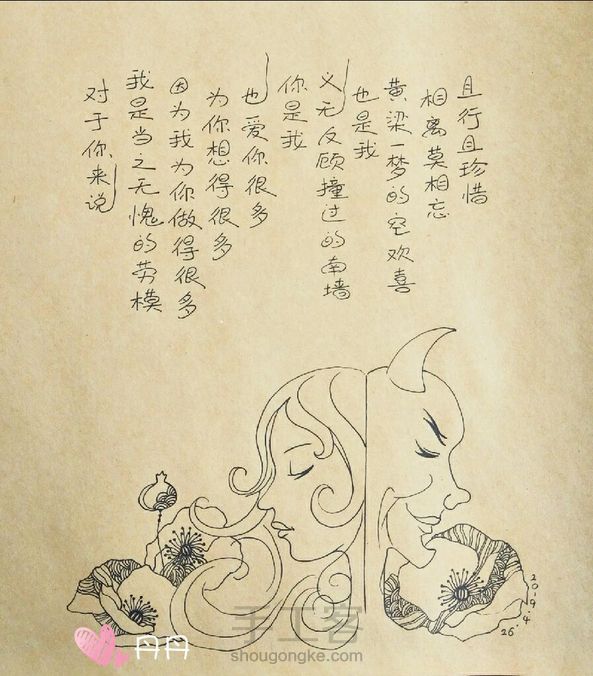 对于你来说
我是当之无愧的劳模
因为我为你做得很多
为你想得很多
也爱你很多
你是我
义无反顾撞过的南墙
也是我
黄梁一梦的空欢喜
相离莫相忘
且行且珍惜
2019.4
26
丹丹
手工客
shougongke.com